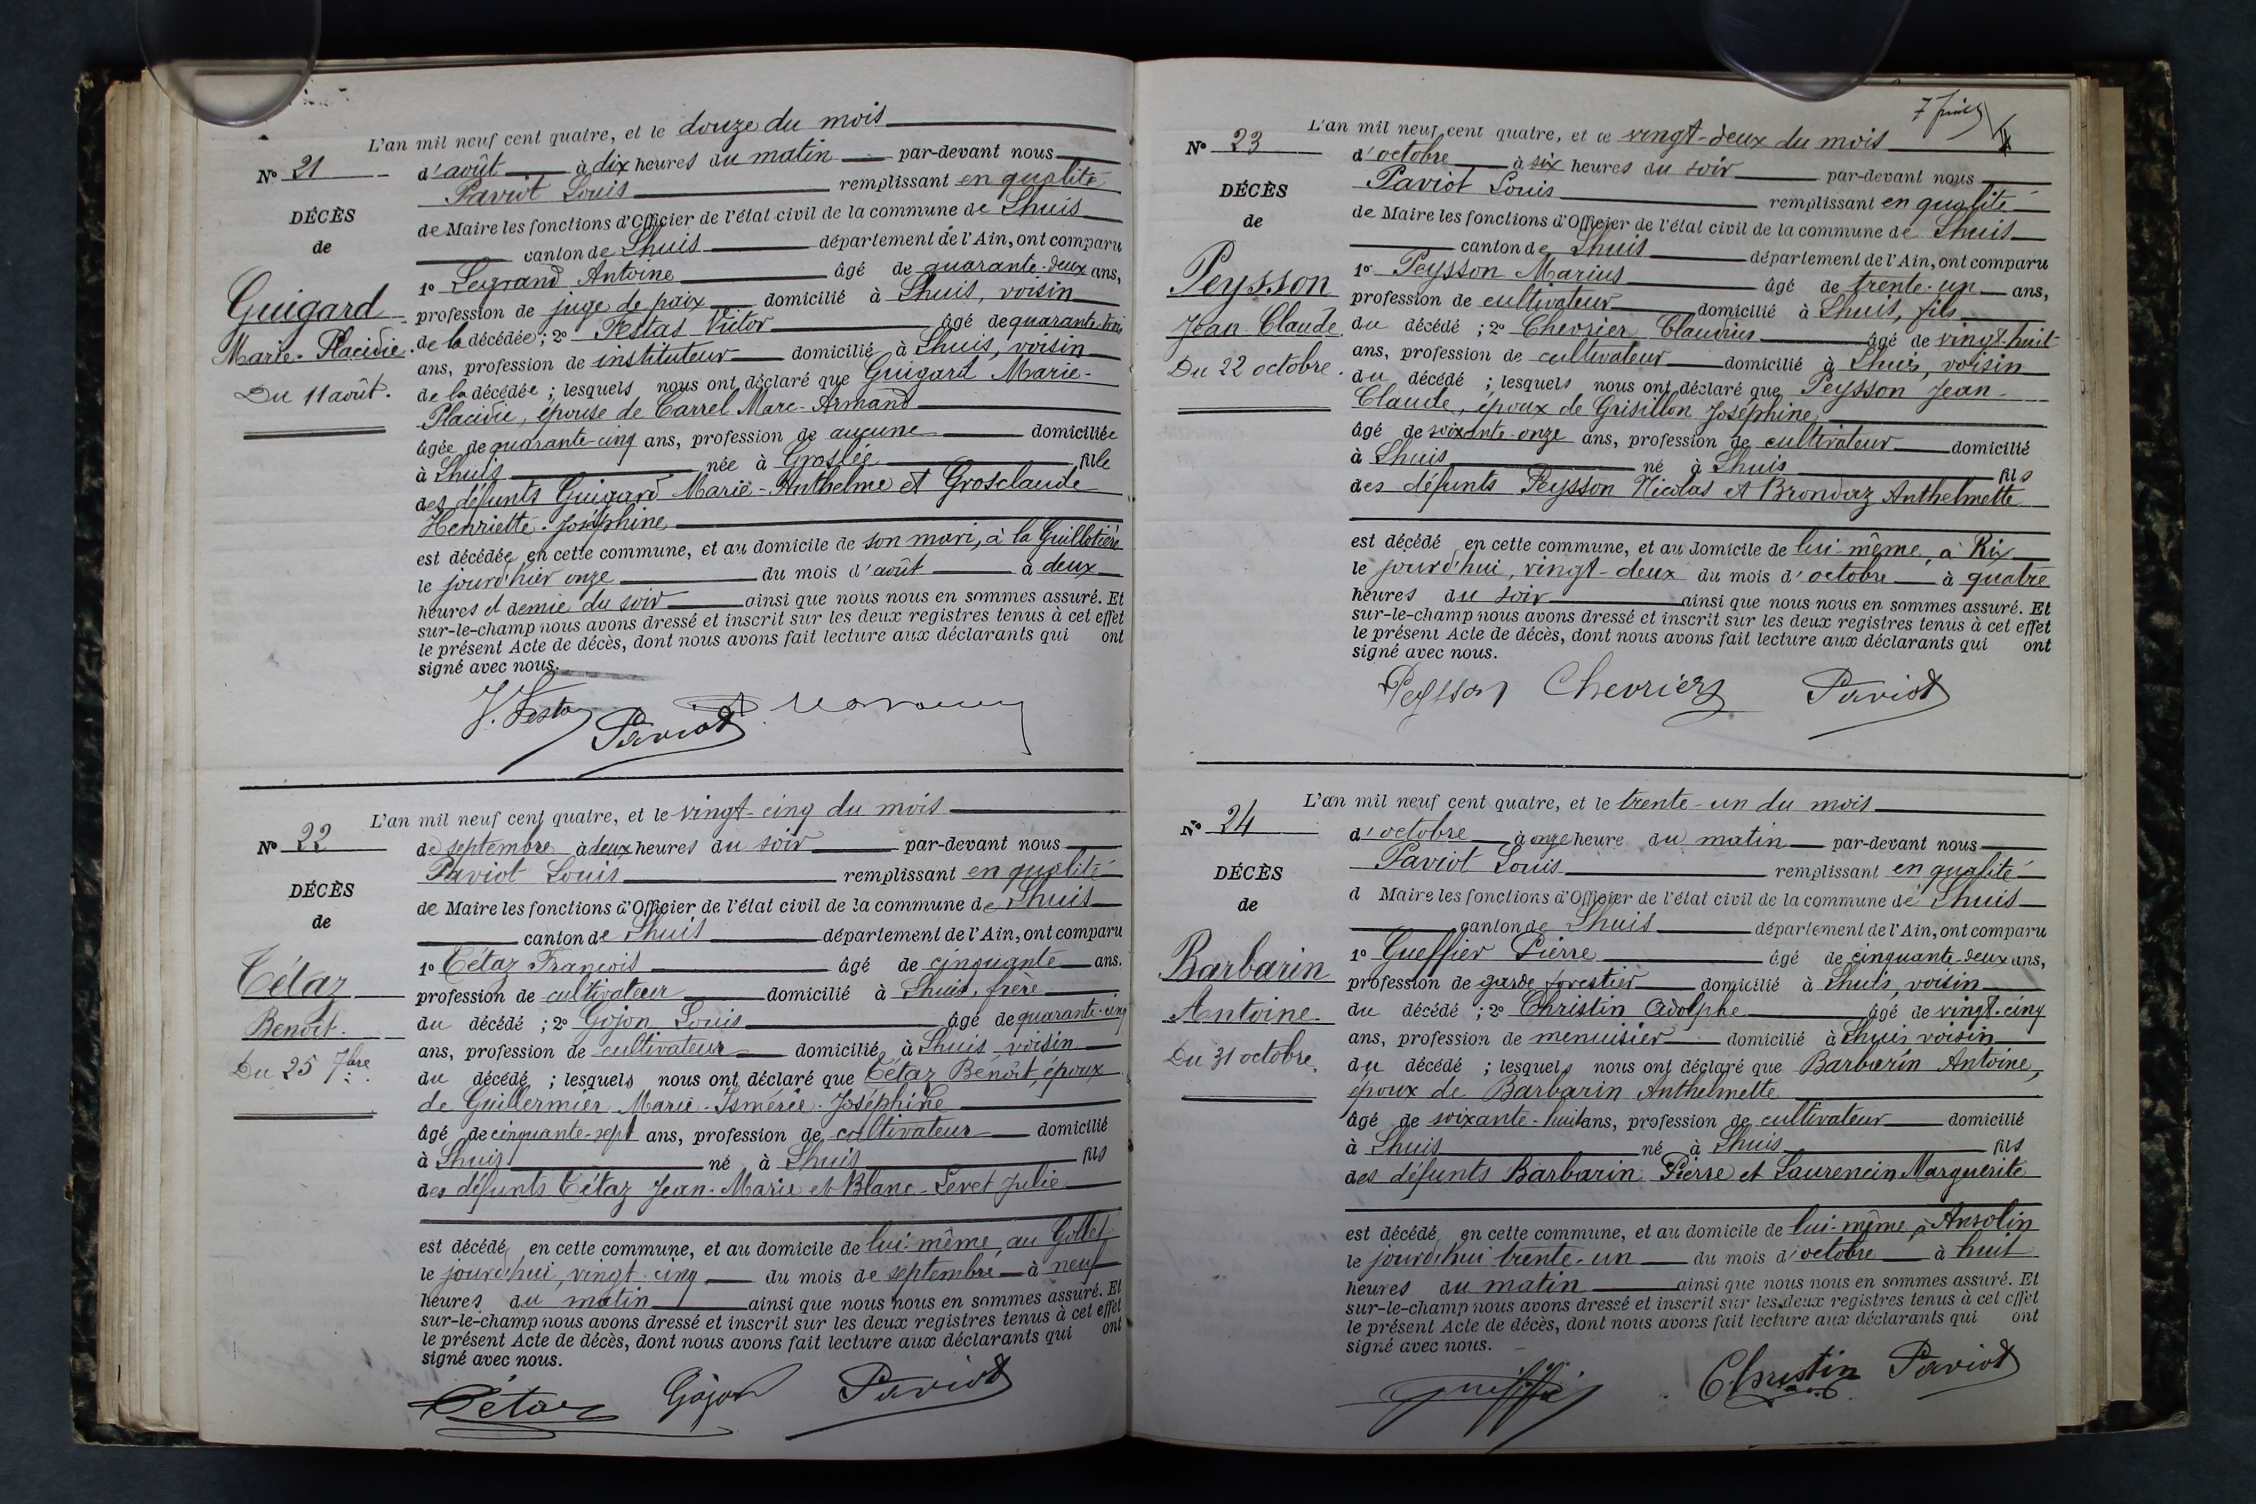 L'an mil neuf cent quatre, et le douze du mois
N° 21
d'août à dix heures du matin par-devant nous
Paviot Louis remplissant en qualité
DÉCÈS
de Maire les fonctions d'Officier de l'état civil de la commune de Lhuis
de
canton de Lhuis département de l'Ain, ont comparu
1° Legrand Antoine âgé de quarante-deux ans,
Guigard
profession de juge de paix domicilié à Lhuis, voisin
Marie-Placidie.
de la décédée ; 2° Festas Victor âgé de quarante-trois
ans, profession de instituteur domicilié à Lhuis, voisin
Du 11 août.
de la décédée ; lesquels nous ont déclaré que Guigard Marie-
Placidie, épouse de Carrel Marc-Armand
âgée de quarante-cinq ans, profession de aucune domiciliée
à Lhuis née à Groslée fille
des défunts Guigard Marie-Anthelme et Grosclaude
Henriette-Joséphine
est décédée en cette commune, et au domicile de son mari, à la Guillotière
le jourd'hier onze du mois d'août à deux
heures et demie du soir ainsi que nous nous en sommes assuré. Et
sur-le-champ nous avons dressé et inscrit sur les deux registres tenus à cet effet
le présent Acte de décès, dont nous avons fait lecture aux déclarants qui ont
signé avec nous.
V. Festas Paviot
L'an mil neuf cent quatre, et le vingt-cinq du mois
N° 22
de septembre à deux heures du soir par-devant nous
Paviot Louis remplissant en qualité
DÉCÈS
de Maire les fonctions d'Officier de l'état civil de la commune de Lhuis
de
canton de Lhuis département de l'Ain, ont comparu
1° Tétaz François âgé de cinquante ans,
Tétaz
profession de cultivateur domicilié à Lhuis, frère
Benoît.
du décédé ; 2° Gojon Louis âgé de quarante-cinq
ans, profession de cultivateur domicilié à Lhuis, voisin
Du 25 7bre
du décédé ; lesquels nous ont déclaré que Tétaz Benoît, époux
de Guillermier Marie-Ismérie-Joséphine
âgé de cinquante-sept ans, profession de cultivateur domicilié
à Lhuis né à Lhuis fils
des défunts Tétaz Jean-Marie et Blanc-Levet Julie
est décédé en cette commune, et au domicile de lui-même, au Gollet
le jourd'hui vingt-cinq du mois de septembre à neuf
heures du matin ainsi que nous nous en sommes assuré. Et
sur-le-champ nous avons dressé et inscrit sur les deux registres tenus à cet effet
le présent Acte de décès, dont nous avons fait lecture aux déclarants qui ont
signé avec nous.
Tétaz Gojon Paviot
L'an mil neuf cent quatre, et le vingt-deux du mois
N° 23
d'octobre à six heures du soir par-devant nous
Paviot Louis remplissant en qualité
DÉCÈS
de Maire les fonctions d'Officier de l'état civil de la commune de Lhuis
de
canton de Lhuis département de l'Ain, ont comparu
1° Peysson Marius âgé de trente-un ans,
Peysson
profession de cultivateur domicilié à Lhuis, fils
Jean-Claude
du décédé ; 2° Chevrier Claudius âgé de vingt-huit
ans, profession de cultivateur domicilié à Lhuis, voisin
Du 22 octobre.
du décédé ; lesquels nous ont déclaré que Peysson Jean-
Claude, époux de Grisillon Joséphine
âgé de soixante-onze ans, profession de cultivateur domicilié
à Lhuis né à Lhuis fils
des défunts Peysson Nicolas et Brondaz Anthelmette
est décédé en cette commune, et au domicile de lui-même, à Rix
le jourd'hui, vingt-deux du mois d'octobre à quatre
heures du soir ainsi que nous nous en sommes assuré. Et
sur-le-champ nous avons dressé et inscrit sur les deux registres tenus à cet effet
le présent Acte de décès, dont nous avons fait lecture aux déclarants qui ont
signé avec nous.
Peysson Chevrier Paviot
L'an mil neuf cent quatre, et le trente-un du mois
N° 24
d'octobre à onze heure du matin par-devant nous
Paviot Louis remplissant en qualité
DÉCÈS
d Maire les fonctions d'Officier de l'état civil de la commune de Lhuis
de
canton de Lhuis département de l'Ain, ont comparu
1° Gueffier Pierre âgé de cinquante-deux ans,
Barbarin
profession de garde forestier domicilié à Lhuis, voisin
Antoine
du décédé ; 2° Christin Adolphe âgé de vingt-cinq
ans, profession de menuisier domicilié à Lhuis voisin
Du 31 octobre.
du décédé ; lesquels nous ont déclaré que Barbarin Antoine,
époux de Barbarin Anthelmette
âgé de soixante-huit ans, profession de cultivateur domicilié
à Lhuis né à Lhuis fils
des défunts Barbarin Pierre et Laurencin Marguerite
est décédé en cette commune, et au domicile de lui-même, à Ansolin
le jourd'hui trente-un du mois d'octobre à huit
heures du matin ainsi que nous nous en sommes assuré. Et
sur-le-champ nous avons dressé et inscrit sur les deux registres tenus à cet effet
le présent Acte de décès, dont nous avons fait lecture aux déclarants qui ont
signé avec nous.
Gueffier Christin Paviot